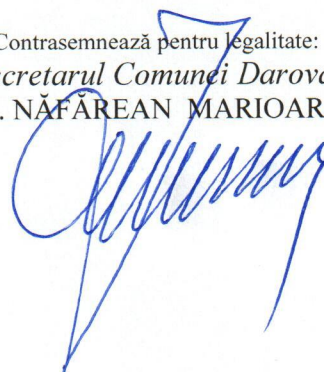 Contrasemnează pentru legalitate:
Secretarul Comunei Darova
. NĂFĂREAN MARIOAR